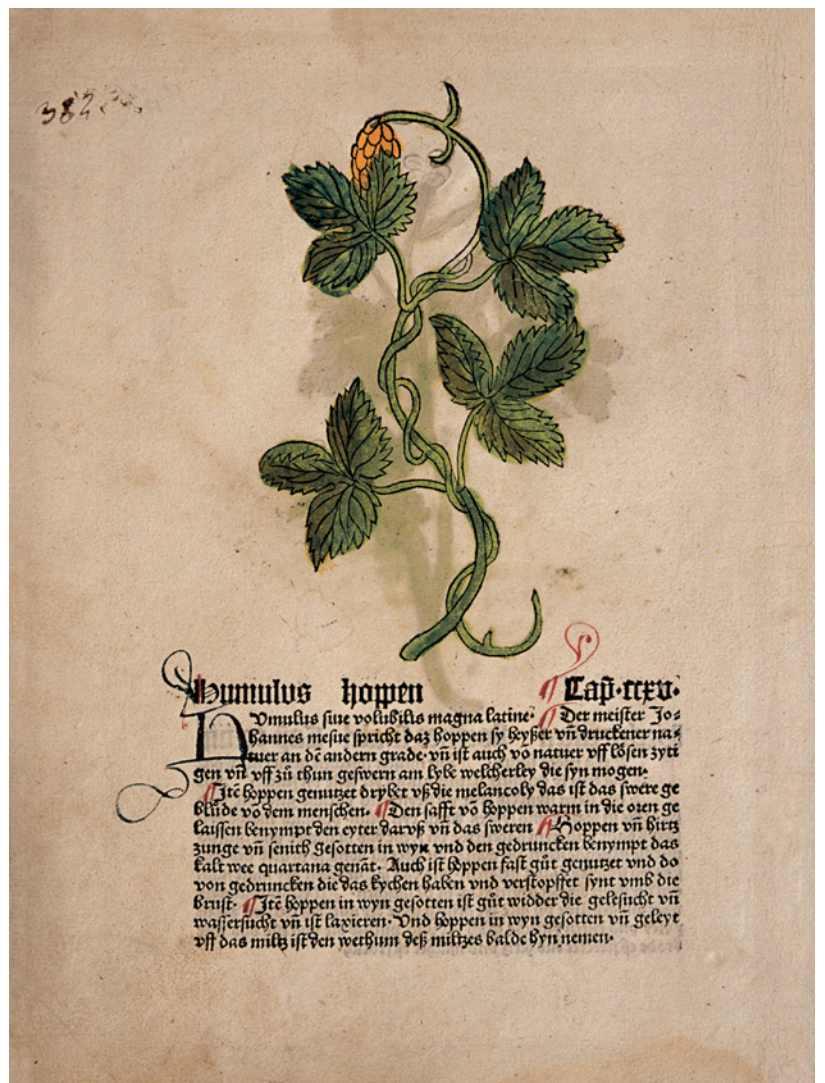 382
Humulus hoppen Cap̃·ccxv·
HVmulus siue volubilis magna latine· Der meister Jo⸗
hannes mesue spricht daz hoppen sy heyßer vñ druckener na⸗
tuer an dē andern grade· vñ ist auch vō natuer vff lösen zyti
gen vñ vff zů thun geswern am lybe welcherley die syn mogen·
Itē hoppen genutzet drybet vß die melancoly das ist das swere ge
blüde vō dem menschen· Den safft vō hoppen warm in die oren ge
laissen benympt den eyter daruß vñ das sweren Hoppen vñ hirtz
zunge vñ senith gesotten in wyn vnd den gedruncken benympt das
kalt wee quartana genāt· Auch ist hoppen fast gůt genutzet vnd do
von gedruncken die das kychen haben vnd verstopffet synt vmb die
brust· Itē hoppen in wyn gesotten ist gůt widder die gelesucht vñ
wassersucht vñ ist laxieren· Vnd hoppen in wyn gesotten vñ geleyt
vff das miltz ist den wethum deß miltzes balde hyn nemen·